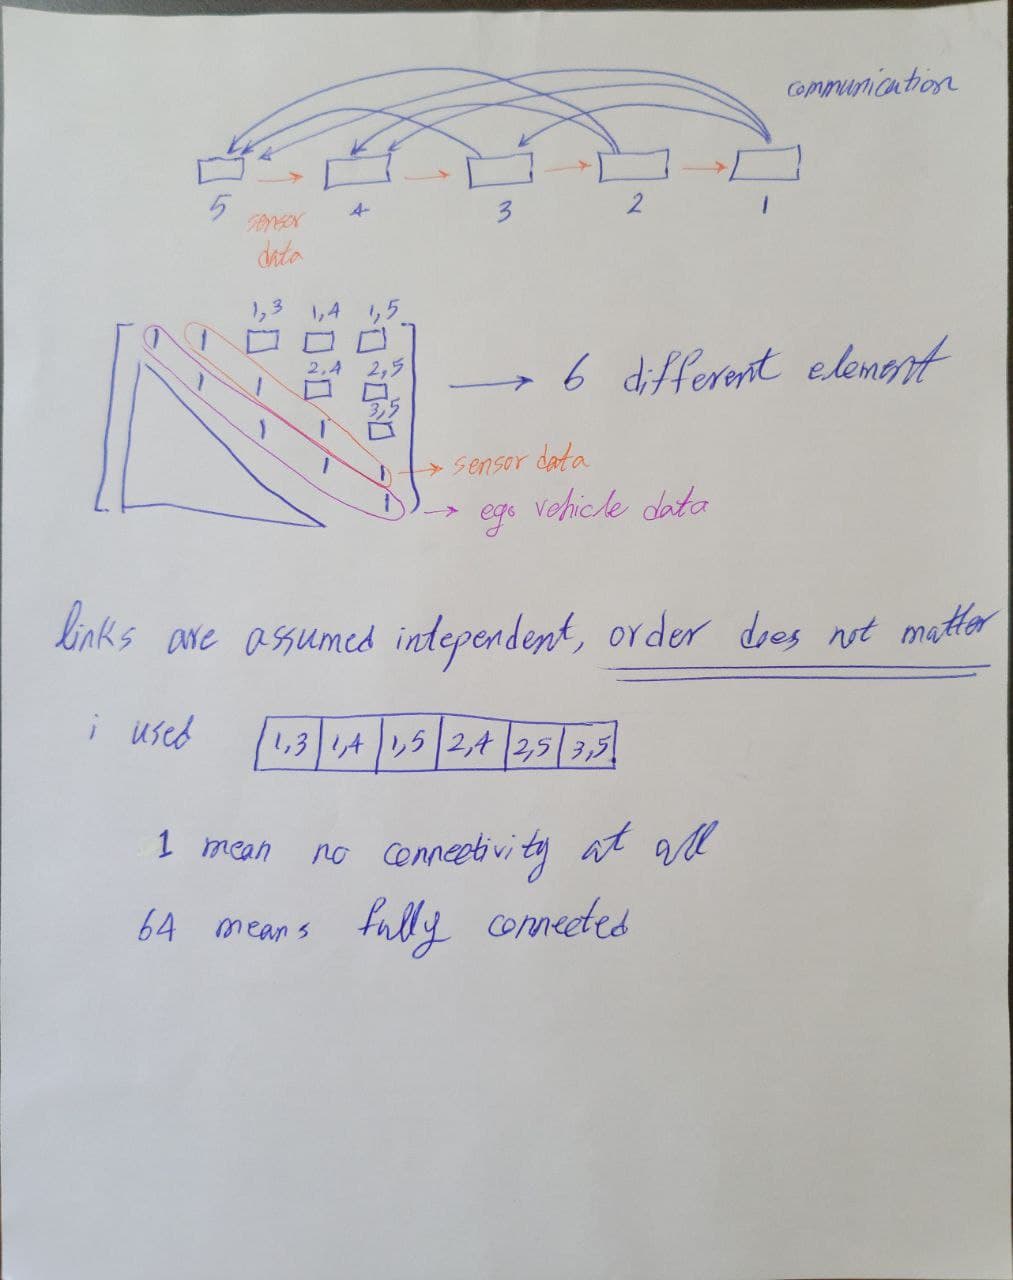 communication
5 4 3 2 1
sensor
data
1,3 1,4 1,5
1 1
2,4 2,5
1 1
3,5
1 1
1 1
1
→ 6 different element
→ sensor data
→ ego vehicle data
links are assumed independent, order does not matter
i used 1,3 1,4 1,5 2,4 2,5 3,5
1 mean no connectivity at all
64 means fully connected